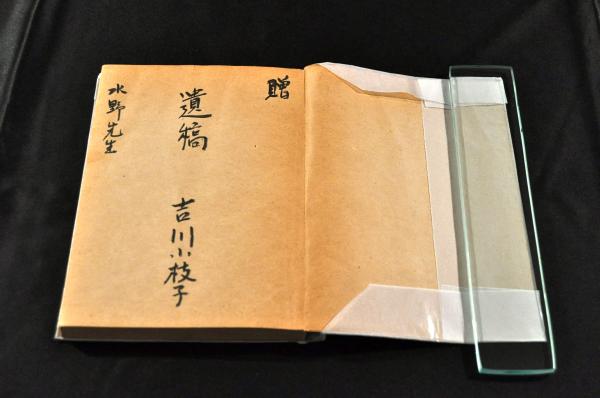 贈
遺稿 吉川小枝子
水野先生